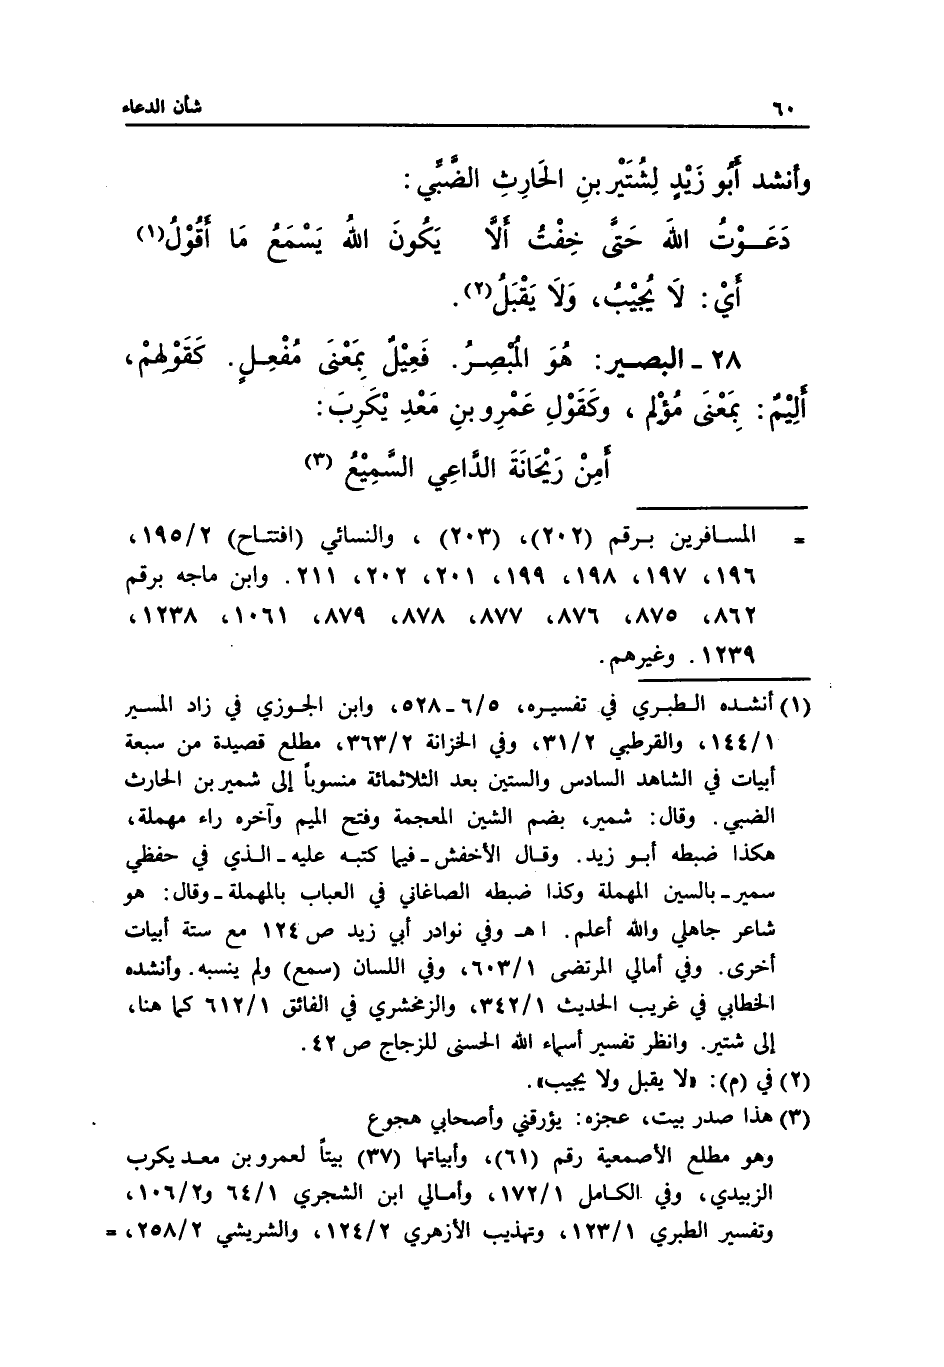 ٦٠ شأن الدعاء
وأنشد أَبُو زَيْدٍ لِشُتَيْرِ بنِ الحَارِثِ الضَّبِّي :
دَعَــوْتُ اللهَ حَتَّى خِفْتُ أَلَّا يَكُونَ اللهُ يَسْمَعُ مَا أَقُوْلُ(١)
أَيْ: لَا يُجِيْبُ، وَلَا يَقْبَلُ(٢).
٢٨ ـ البصير: هُوَ المُبْصِرُ. فَعِيْلٌ بِمَعْنَى مُفْعِلٍ. كَقَوْلِهِمْ،
أَلِيْمٌ: بِمَعْنَى مُؤْلِم ، وكَقَوْلِ عَمْرِو بنِ مَعْدِ يْكَرِبَ:
أَمِنْ رَيْحَانَةَ الدَّاعِي السَّمِيْعُ (٣)
= المسافرين برقم (٢٠٢)، (٢٠٣) ، والنسائي (افتتاح) ١٩٥/٢،
١٩٦، ١٩٧، ١٩٨، ١٩٩، ٢٠١، ٢٠٢، ٢١١. وابن ماجه برقم
٨٦٢، ٨٧٥، ٨٧٦، ٨٧٧، ٨٧٨، ٨٧٩، ١٠٦١، ١٢٣٨،
١٢٣٩. وغيرهم.
(١) أنشده الطبري في تفسيره، ٥/٦ ـ ٥٢٨، وابن الجوزي في زاد المسير
١٤٤/١، والقرطبي ٣١/٢، وفي الخزانة ٣٦٣/٢، مطلع قصيدة من سبعة
أبيات في الشاهد السادس والستين بعد الثلاثمائة منسوباً إلى شمير بن الحارث
الضبي. وقال: شمير، بضم الشين المعجمة وفتح الميم وآخره راء مهملة،
هكذا ضبطه أبو زيد. وقال الأخفش ـ فيما كتبه عليه ـ الذي في حفظي
سمير ـ بالسين المهملة وكذا ضبطه الصاغاني في العباب بالمهملة ـ وقال: هو
شاعر جاهلي والله أعلم. اهـ وفي نوادر أبي زيد ص ١٢٤ مع ستة أبيات
أخرى. وفي أمالي المرتضى ٦٠٣/١، وفي اللسان (سمع) ولم ينسبه. وأنشده
الخطابي في غريب الحديث ٣٤٢/١، والزمخشري في الفائق ٦١٢/١ كما هنا،
إلى شتير. وانظر تفسير أسماء الله الحسنى للزجاج ص ٤٢.
(٢) في (م): «لا يقبل ولا يجيب».
(٣) هذا صدر بيت، عجزه: يؤرقني وأصحابي هجوع
وهو مطلع الأصمعية رقم (٦١)، وأبياتها (٣٧) بيتاً لعمرو بن معد يكرب
الزبيدي، وفي الكامل ١٧٢/١، وأمالي ابن الشجري ٦٤/١ و١٠٦/٢،
وتفسير الطبري ١٢٣/١، وتهذيب الأزهري ١٢٤/٢، والشريشي ٢٥٨/٢، =